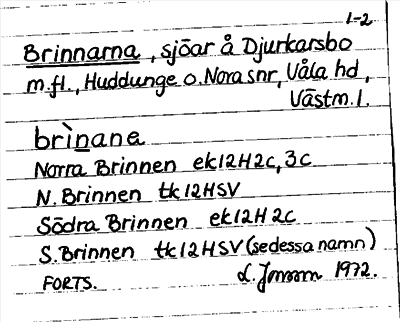 1-2
Brinnarna, sjöar å Djurkarsbo
m.fl., Huddunge o. Nora snr, Våla hd,
Västm. l.
brìnane
Norra Brinnen ek12H2c, 3c
N. Brinnen tk12HSV
Södra Brinnen ek12H2c
S. Brinnen tk12HSV (se dessa namn)
FORTS. 1972.